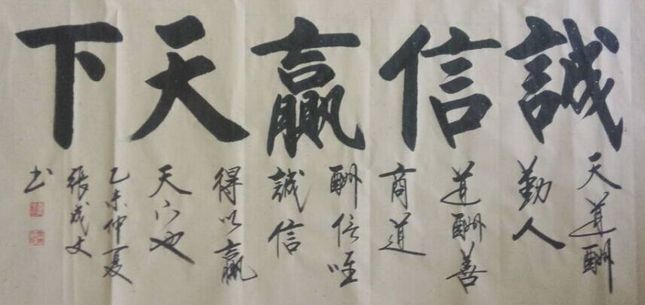 誠信贏天下
天道酬
勤人
道酬善
商道
酬信唯
誠信
得以贏
天下也
乙未仲夏
張成文
书